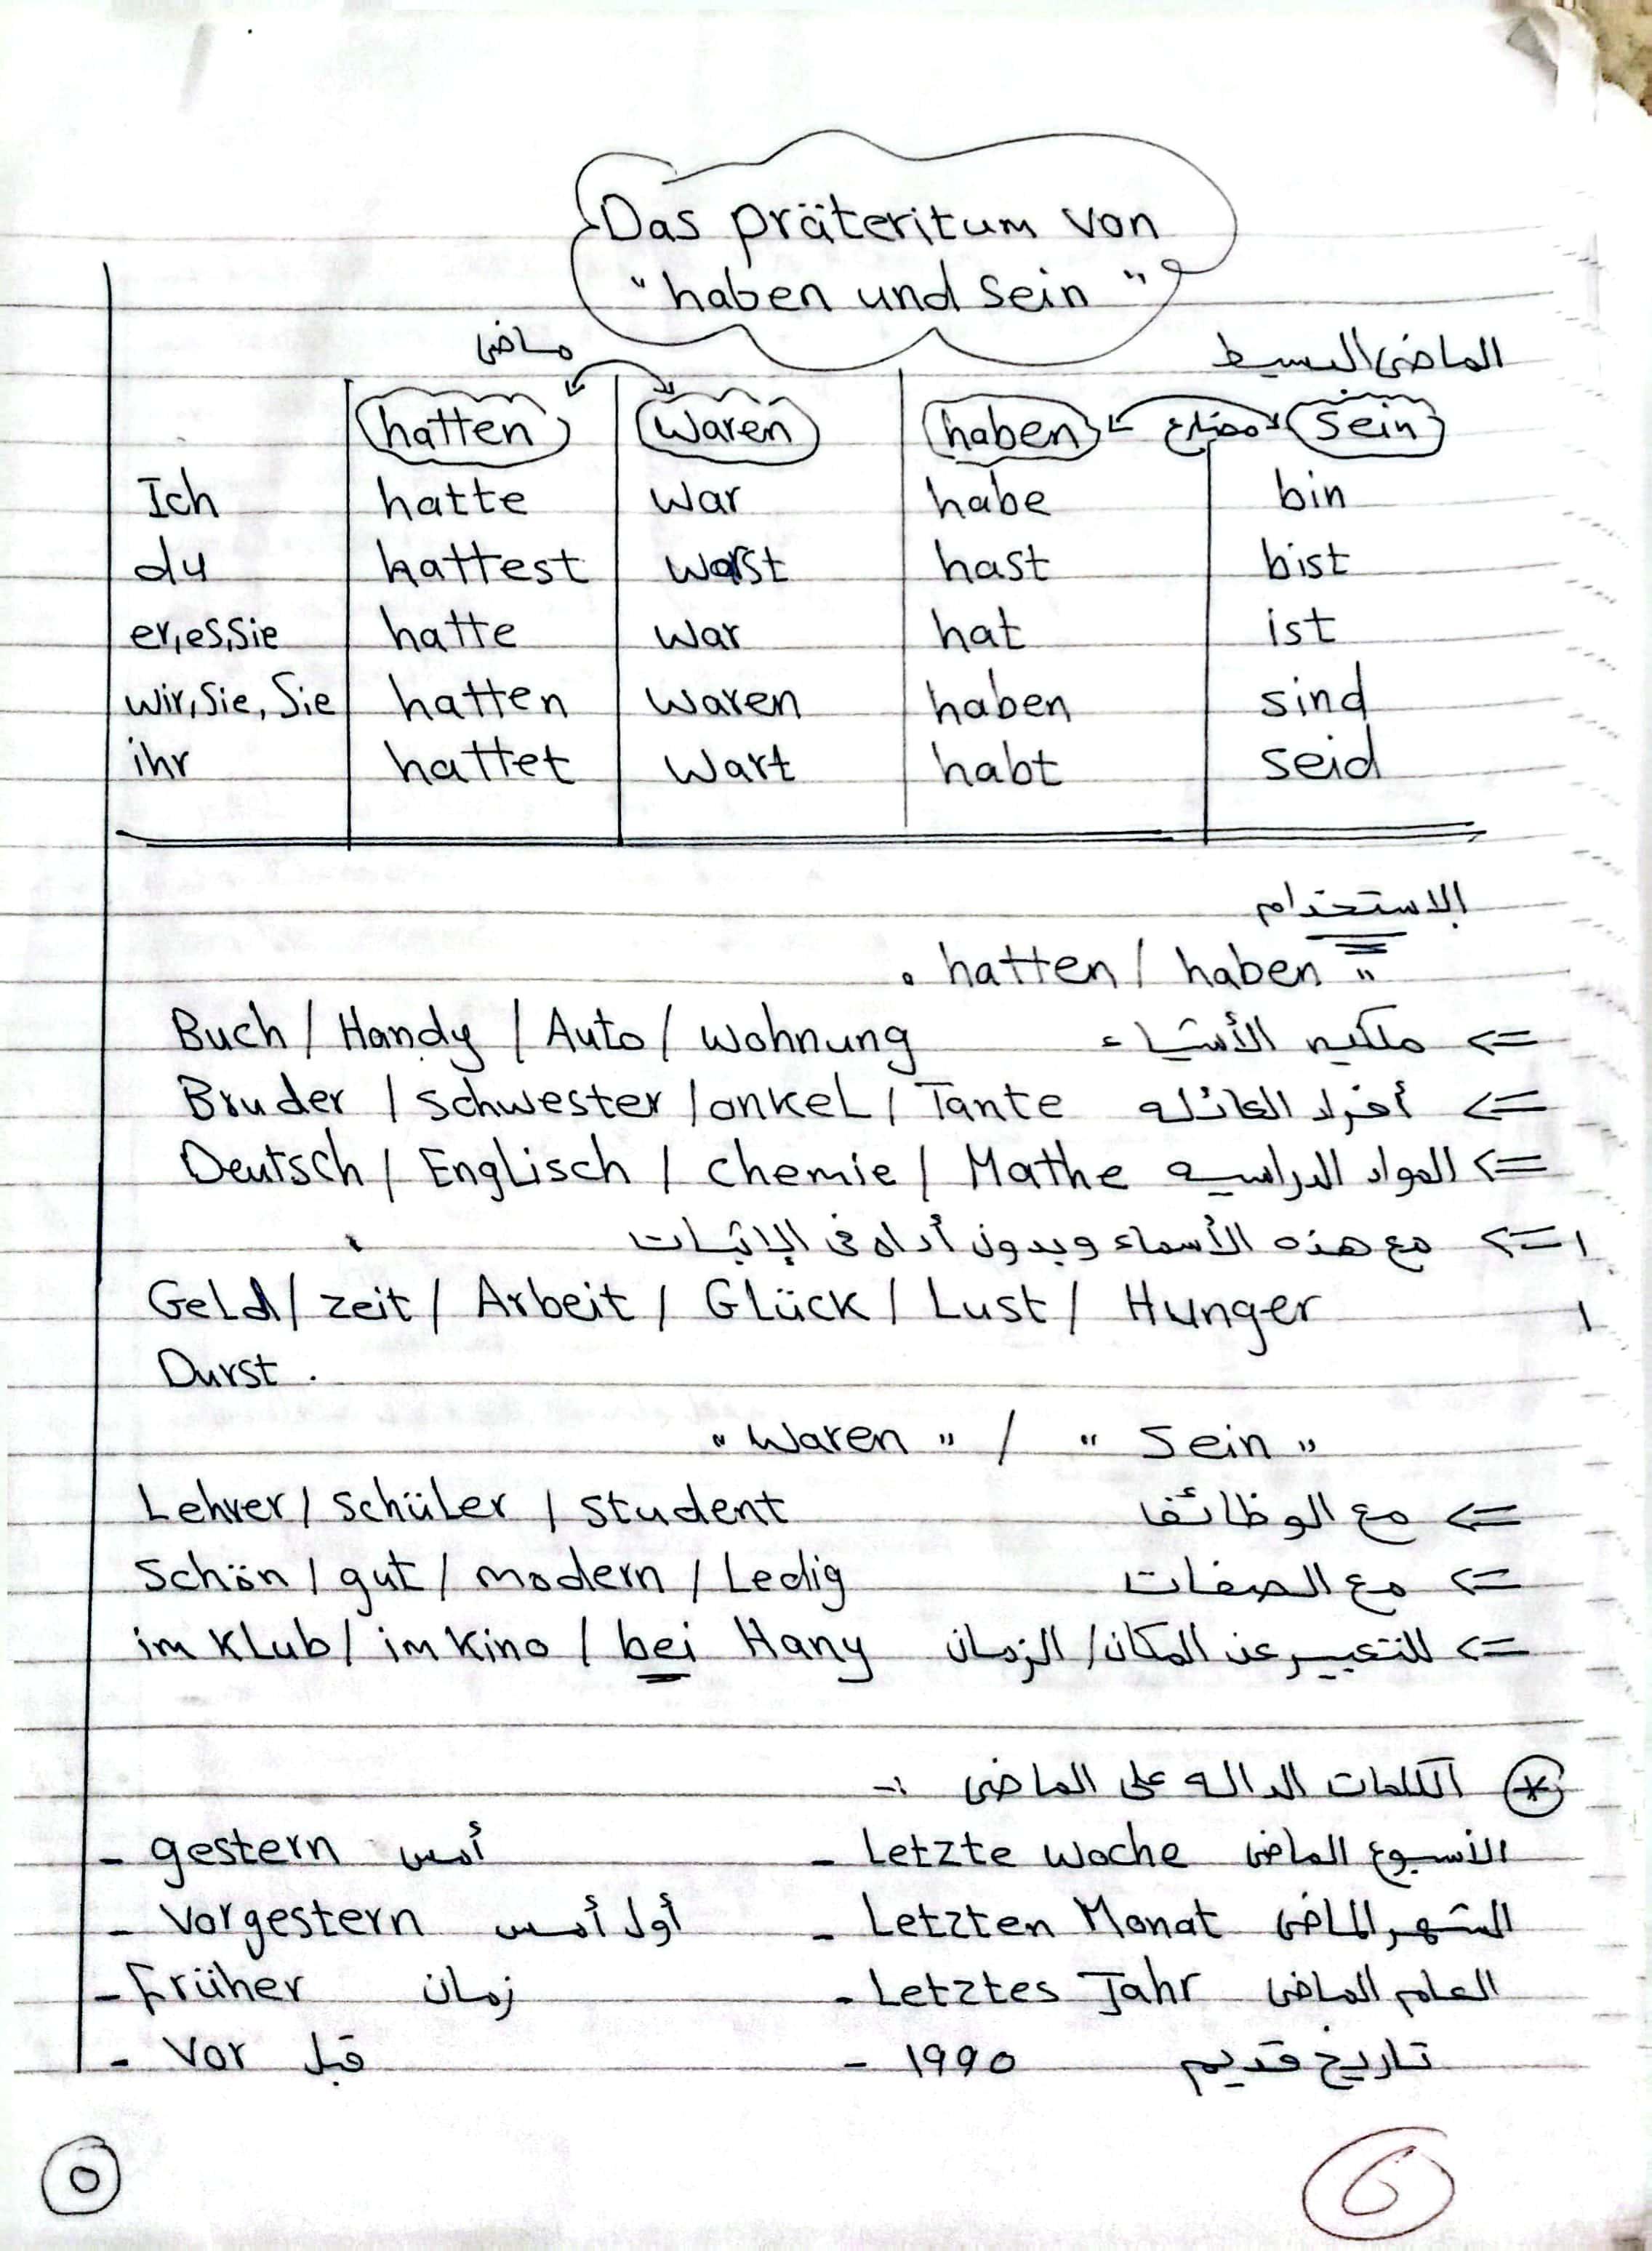 Das präteritum von
"haben und sein"
ماضى
الماضى البسيط
hatten waren haben مضارع sein
Ich hatte war habe bin
du hattest warst hast bist
er,es,sie hatte war hat ist
wir,sie,Sie hatten waren haben sind
ihr hattet wart habt seid
الاستخدام
" hatten / haben "
Buch / Handy / Auto / wohnung ملكيه الأشياء <=
Bruder / schwester / onkel / Tante أفراد العائله <=
Deutsch / Englisch / chemie / Mathe المواد الدراسيه <=
مع هذه الأسماء وبدون أداه فى الإثبات <=
Geld / zeit / Arbeit / Glück / Lust / Hunger
Durst .
"waren" / "sein"
Lehrer / schüler / student مع الوظائف <=
schön / gut / modern / Ledig مع الصفات <=
im klub / im kino / bei Hany للتعبير عن المكان / الزمان <=
* الكلمات الداله على الماضى :-
- gestern أمس - Letzte woche الأسبوع الماضى
- vorgestern أول أمس - Letzten Monat الشهر الماضى
- früher زمان - Letztes Jahr العام الماضى
- vor قبل - 1990 تاريخ قديم
٥ 6